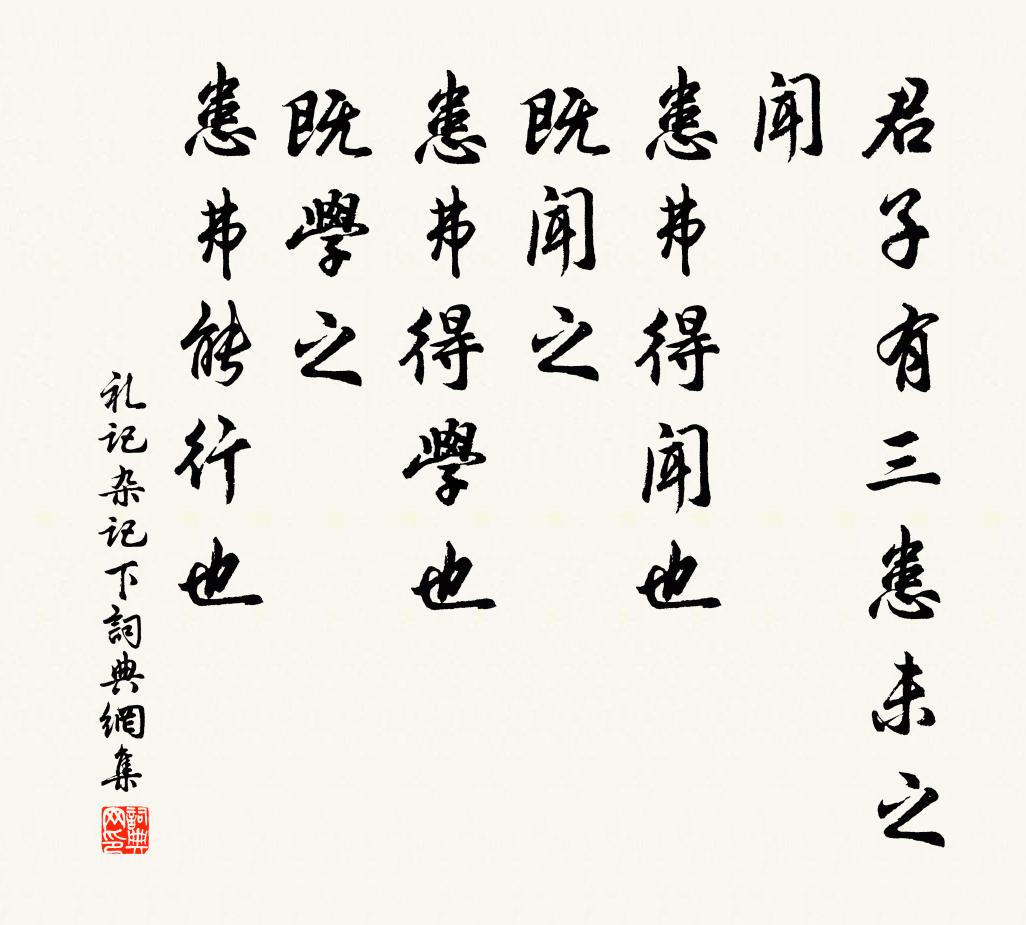 君子有三患未之
闻
患弗得闻也
既闻之
患弗得學也
既學之
患弗能行也
礼记杂记下詞典網集
詞典网印